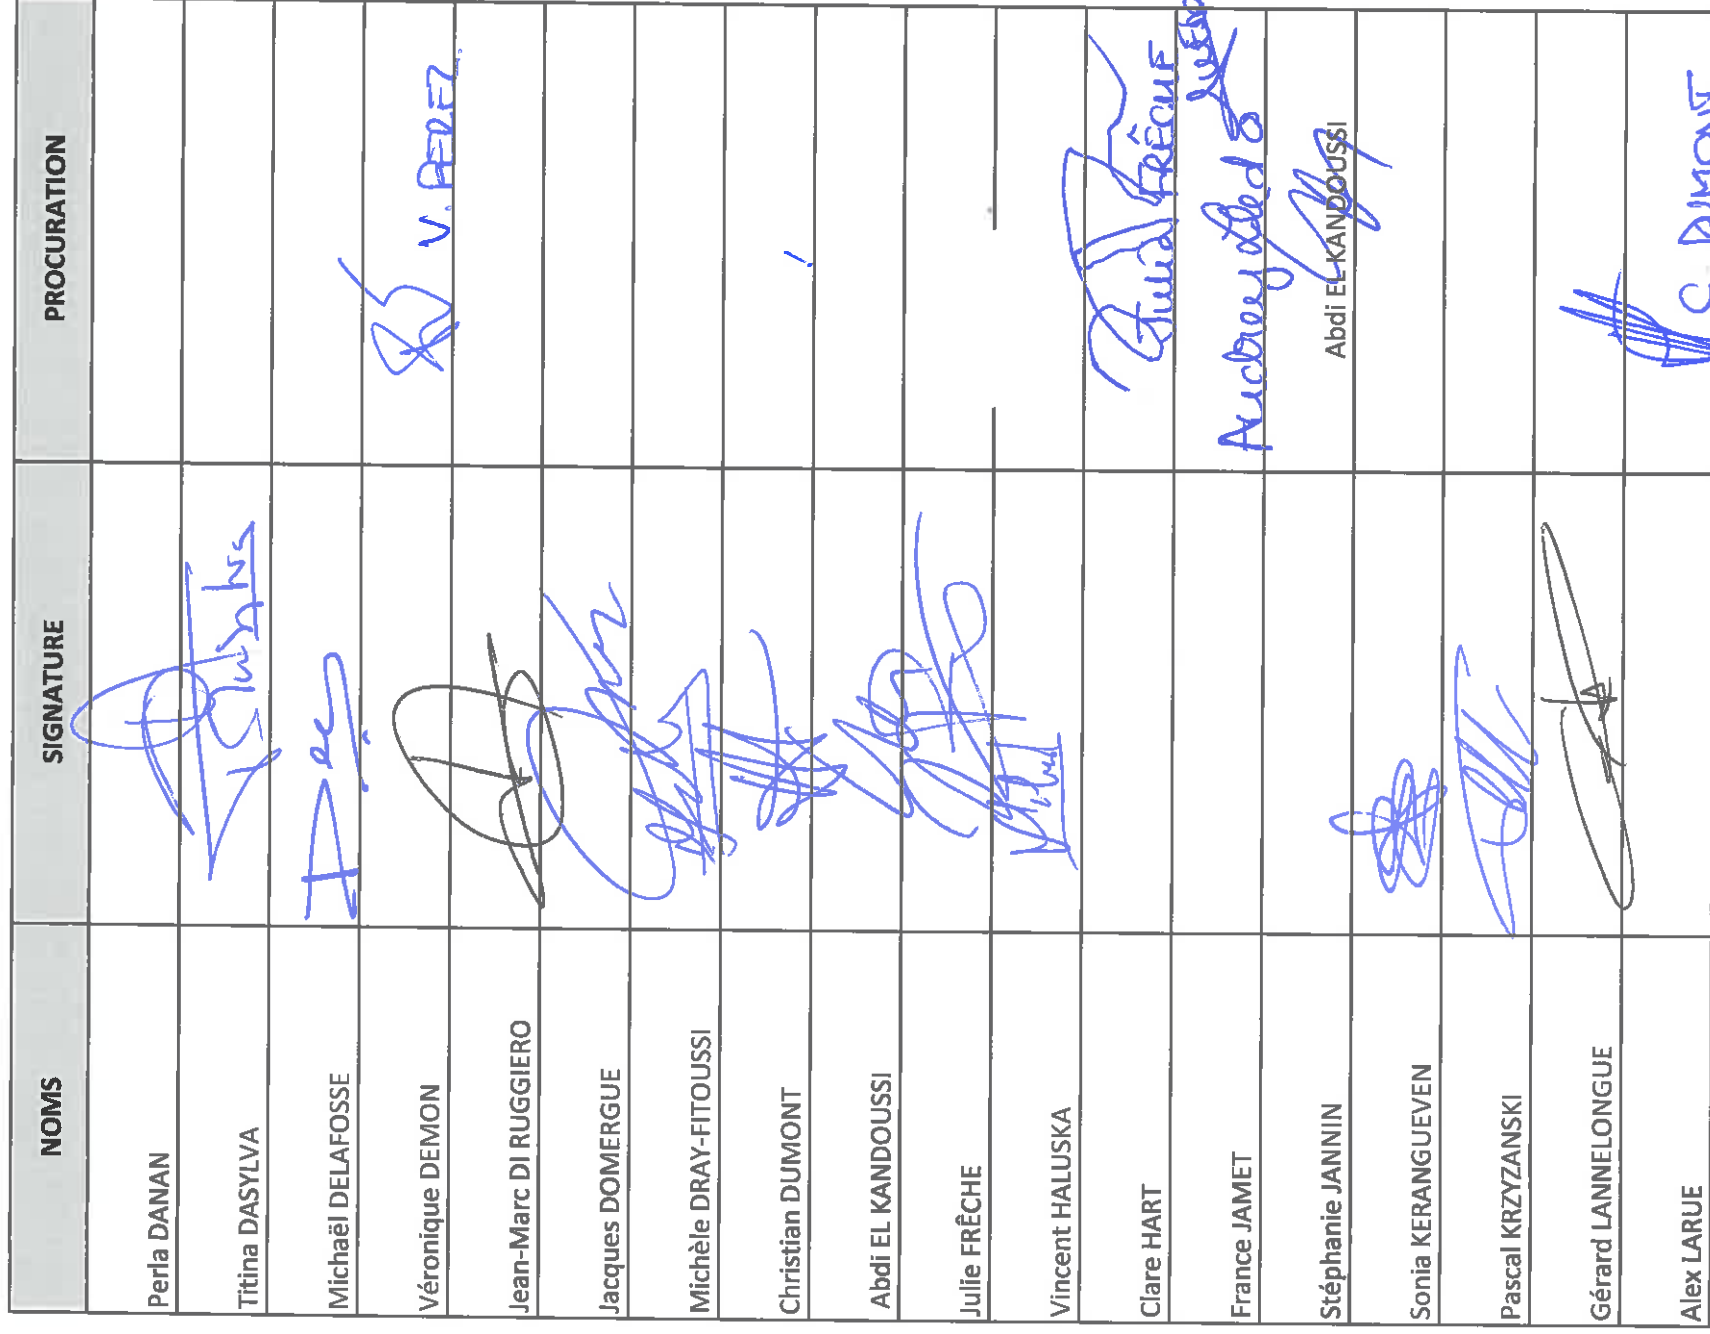 NOMS SIGNATURE PROCURATION
Perla DANAN
Titina DASYLVA
Michaël DELAFOSSE
Véronique DEMON V. PEREZ
Jean-Marc DI RUGGIERO
Jacques DOMERGUE
Michèle DRAY-FITOUSSI
Christian DUMONT
Abdi EL KANDOUSSI
Julie FRÊCHE
Vincent HALUSKA
Clare HART FRÊCHE
France JAMET Audrey
Stéphanie JANNIN Abdi EL KANDOUSSI
Sonia KERANGUEVEN
Pascal KRZYZANSKI
Gérard LANNELONGUE
Alex LARUE C. DUMONT